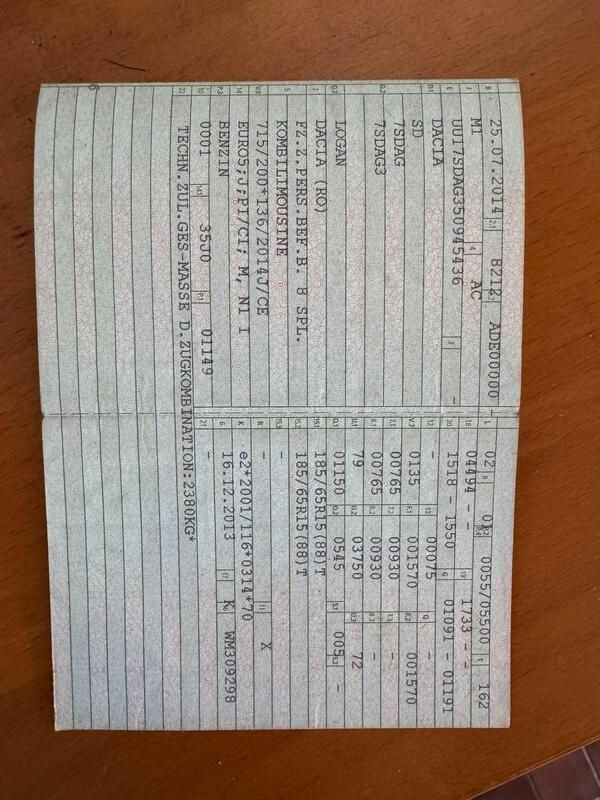 B 25.07.2014 2.1 8212 2.2 ADE00000 -
J M1 4 AC
E UU17SDAG350945436 3 -
D.1 DACIA
D.2 SD
7SDAG
7SDAG3
D.3 LOGAN
2 DACIA (RO)
5 FZ.Z.PERS.BEF.B. 8 SPL.
KOMBILIMOUSINE
V.9 715/2007*136/2014J/CE
14 EURO5;J;PI/CI; M, N1 I
P.3 BENZIN
10 0001 14.1 35J0 P.1 01149
22 TECHN.ZUL.GES-MASSE D.ZUGKOMBINATION:2380KG*
L 02 9 01 P.2 P.4 0055/05500 T 162
18 04494 - - 19 1733 - -
20 1518 - 1550 G 01091 - 01191
12 - 13 00075 Q -
V.7 0135 F.1 001570 F.2 001570
7.1 00765 7.2 00930 7.3 -
8.1 00765 8.2 00930 8.3 -
U.1 79 U.2 03750 U.3 72
O.1 01150 O.2 0545 S.1 005 S.2 -
15.1 185/65R15(88)T
15.2 185/65R15(88)T
15.3 -
R - 11 X
K e2*2001/116*0314*70
6 16.12.2013 17 K 16 WM309298
21 -